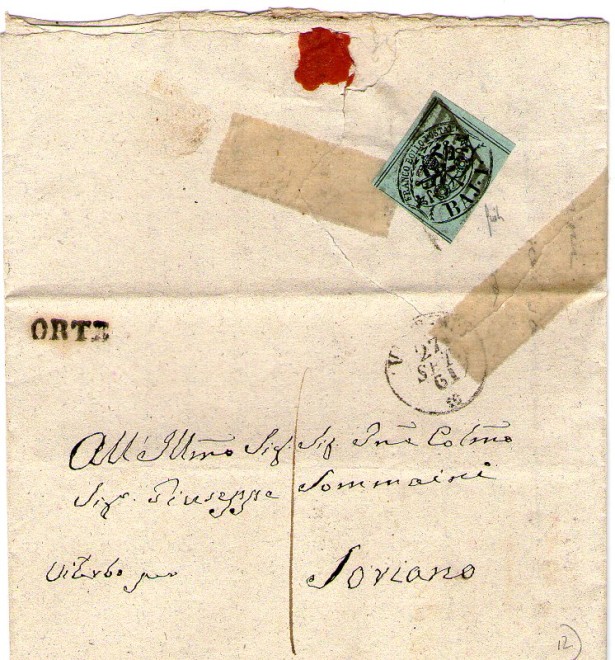 FRANCO BOLLO POSTALE
BAJ
ORTE
27
SET
61
All' Illmo Sig. Sig. Pne Colmo
Sigr. Giuseppe Sommaini
Viterbo per Soriano
12